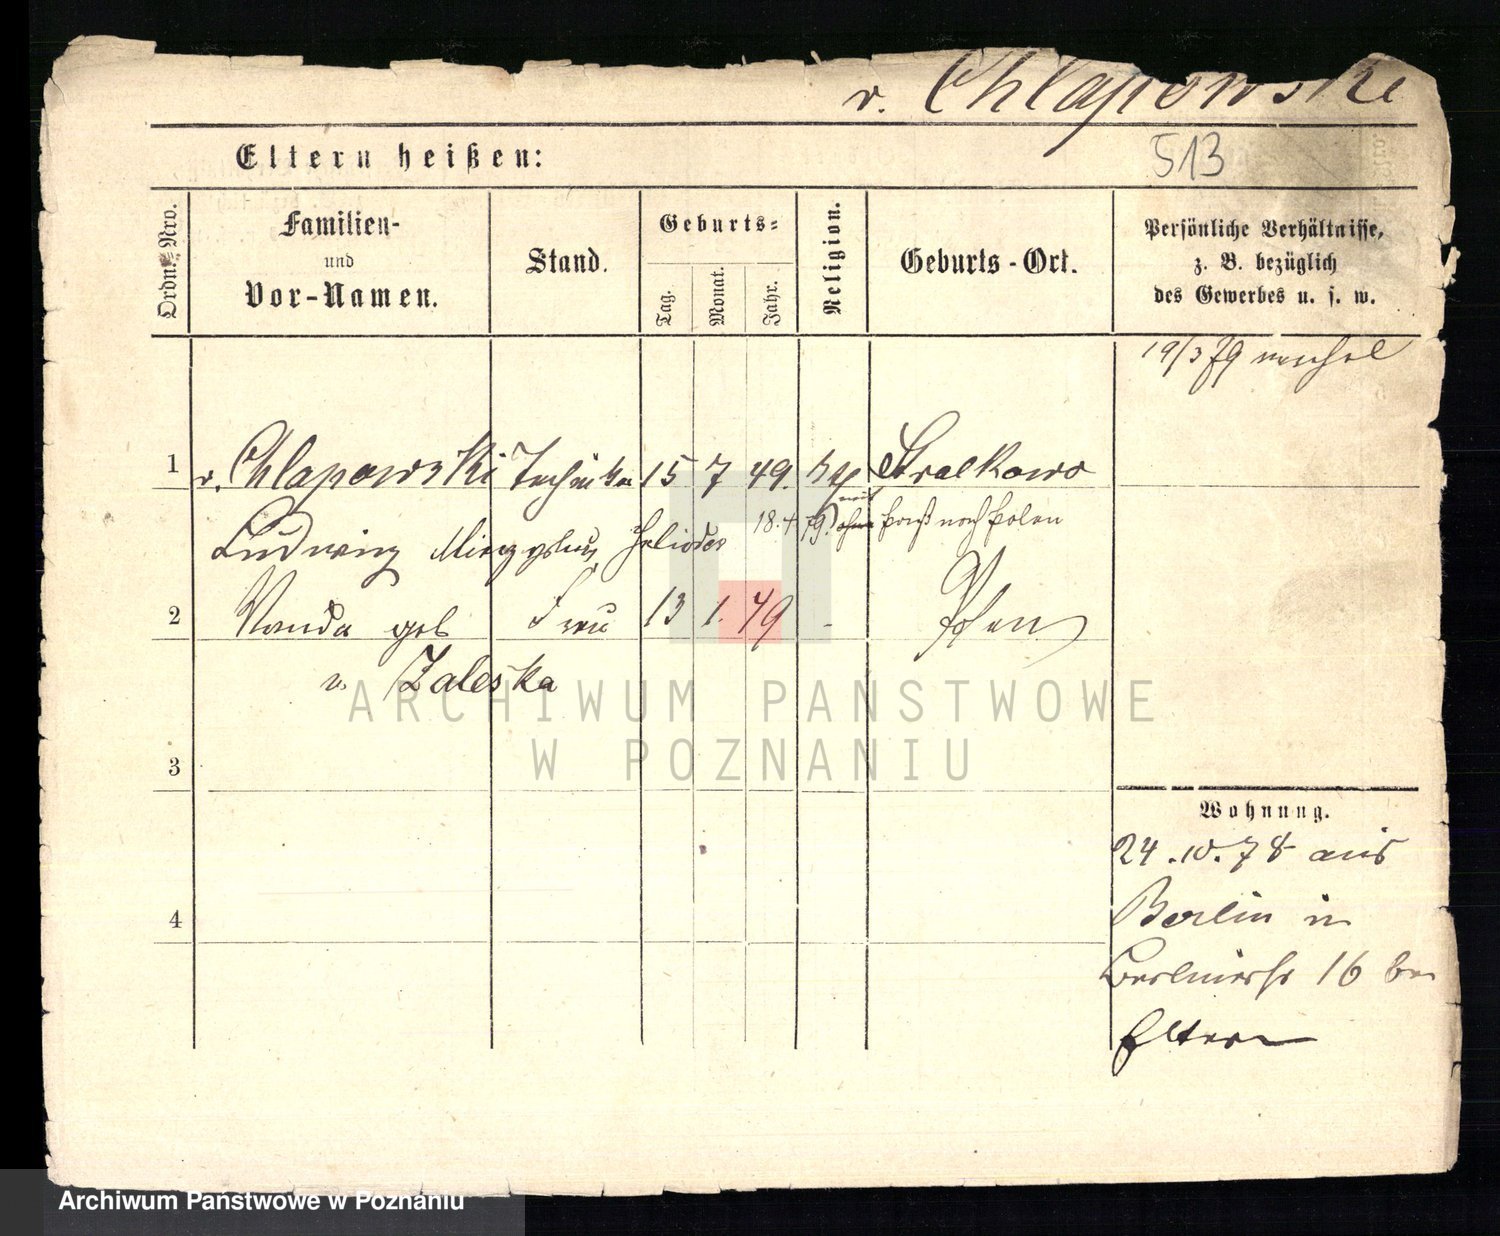 v. Chlapowski
Eltern heißen:
513
Ordn. Nro.
Familien-
und
Vor-Namen.
Stand.
Geburts-
Tag.
Monat.
Jahr.
Religion.
Geburts-Ort.
Persönliche Verhältnisse,
z. B. bezüglich
des Gewerbes u. s. w.
19/3 79
1
v. Chlapowski Techniker 15 7 49. Stralkowo
Ludwig 18. 4 79. Paß nach Polen
2
Wanda geb Frau 13 1. 49 - Posen
v. Zaleska
ARCHIWUM PAŃSTWOWE
W POZNANIU
3
Wohnung.
24.10.78 aus
Berlin in
Berlinerstr 16 bei
Eltern
4
Archiwum Państwowe w Poznaniu